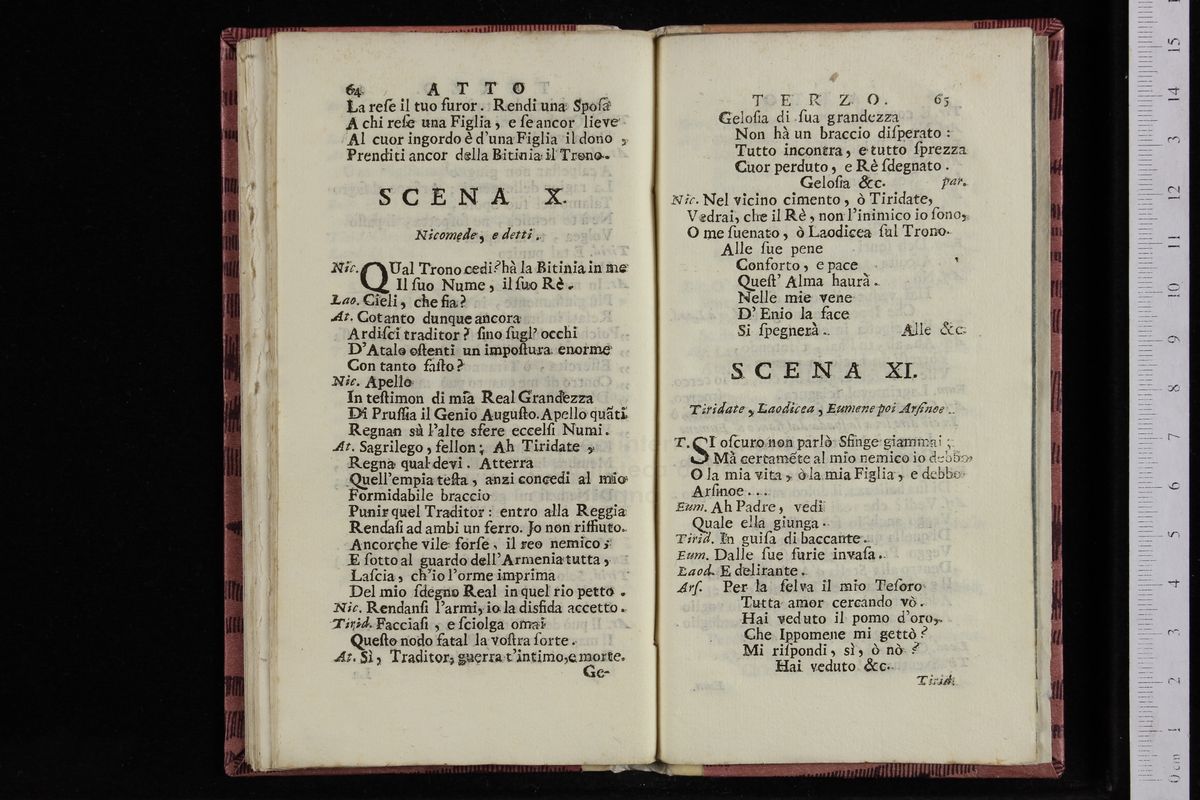 64 ATTO
La reſe il tuo furor. Rendi una Spoſa
A chi reſe una Figlia, e ſe ancor lieve
Al cuor ingordo è d'una Figlia il dono,
Prenditi ancor della Bitinia il Trono.
SCENA X.
Nicomede, e detti.
Nic. QUal Trono cedi? hà la Bitinia in me
Il ſuo Nume, il ſuo Rè.
Lao. Cieli, che ſia?
At. Cotanto dunque ancora
Ardiſci traditor? ſino ſugl' occhi
D'Atalo oſtenti un impoſtura enorme
Con tanto faſto?
Nic. Apello
In teſtimon di mia Real Grandezza
Di Pruſſia il Genio Auguſto. Apello quãti
Regnan sù l'alte sfere eccelſi Numi.
At. Sagrilego, fellon; Ah Tiridate,
Regna qual devi. Atterra
Quell'empia teſta, anzi concedi al mio
Formidabile braccio
Punir quel Traditor: entro alla Reggia
Rendaſi ad ambi un ferro. Jo non riffiuto.
Ancorche vile forſe, il reo nemico;
E ſotto al guardo dell'Armenia tutta,
Laſcia, ch'io l'orme imprima
Del mio ſdegno Real in quel rio petto.
Nic. Rendanſi l'armi, io la disfida accetto.
Tirid. Facciaſi, e ſciolga omai
Queſto nodo fatal la voſtra ſorte.
At. Sì, Traditor, guerra t'intimo, e morte.
Ge-
TERZO. 65
Geloſia di ſua grandezza
Non hà un braccio diſperato:
Tutto incontra, e tutto ſprezza
Cuor perduto, e Rè ſdegnato.
Geloſia &c. par.
Nic. Nel vicino cimento, ò Tiridate,
Vedrai, che il Rè, non l'inimico io ſono,
O me ſuenato, ò Laodicea ſul Trono.
Alle ſue pene
Conforto, e pace
Queſt' Alma haurà.
Nelle mie vene
D' Enio la face
Si ſpegnerà. Alle &c.
SCENA XI.
Tiridate, Laodicea, Eumene poi Arſinoe.
T. SI oſcuro non parlò Sfinge giammai;
Mà certamẽte al mio nemico io debbo,
O la mia vita, ò la mia Figlia, e debbo
Arſinoe...
Eum. Ah Padre, vedi
Quale ella giunga.
Tirid. In guiſa di baccante.
Eum. Dalle ſue furie invaſa.
Laod. E delirante.
Arſ. Per la ſelva il mio Teſoro
Tutta amor cercando vò.
Hai veduto il pomo d'oro,
Che Ippomene mi gettò?
Mi riſpondi, sì, ò nò?
Hai veduto &c.
Tirid.